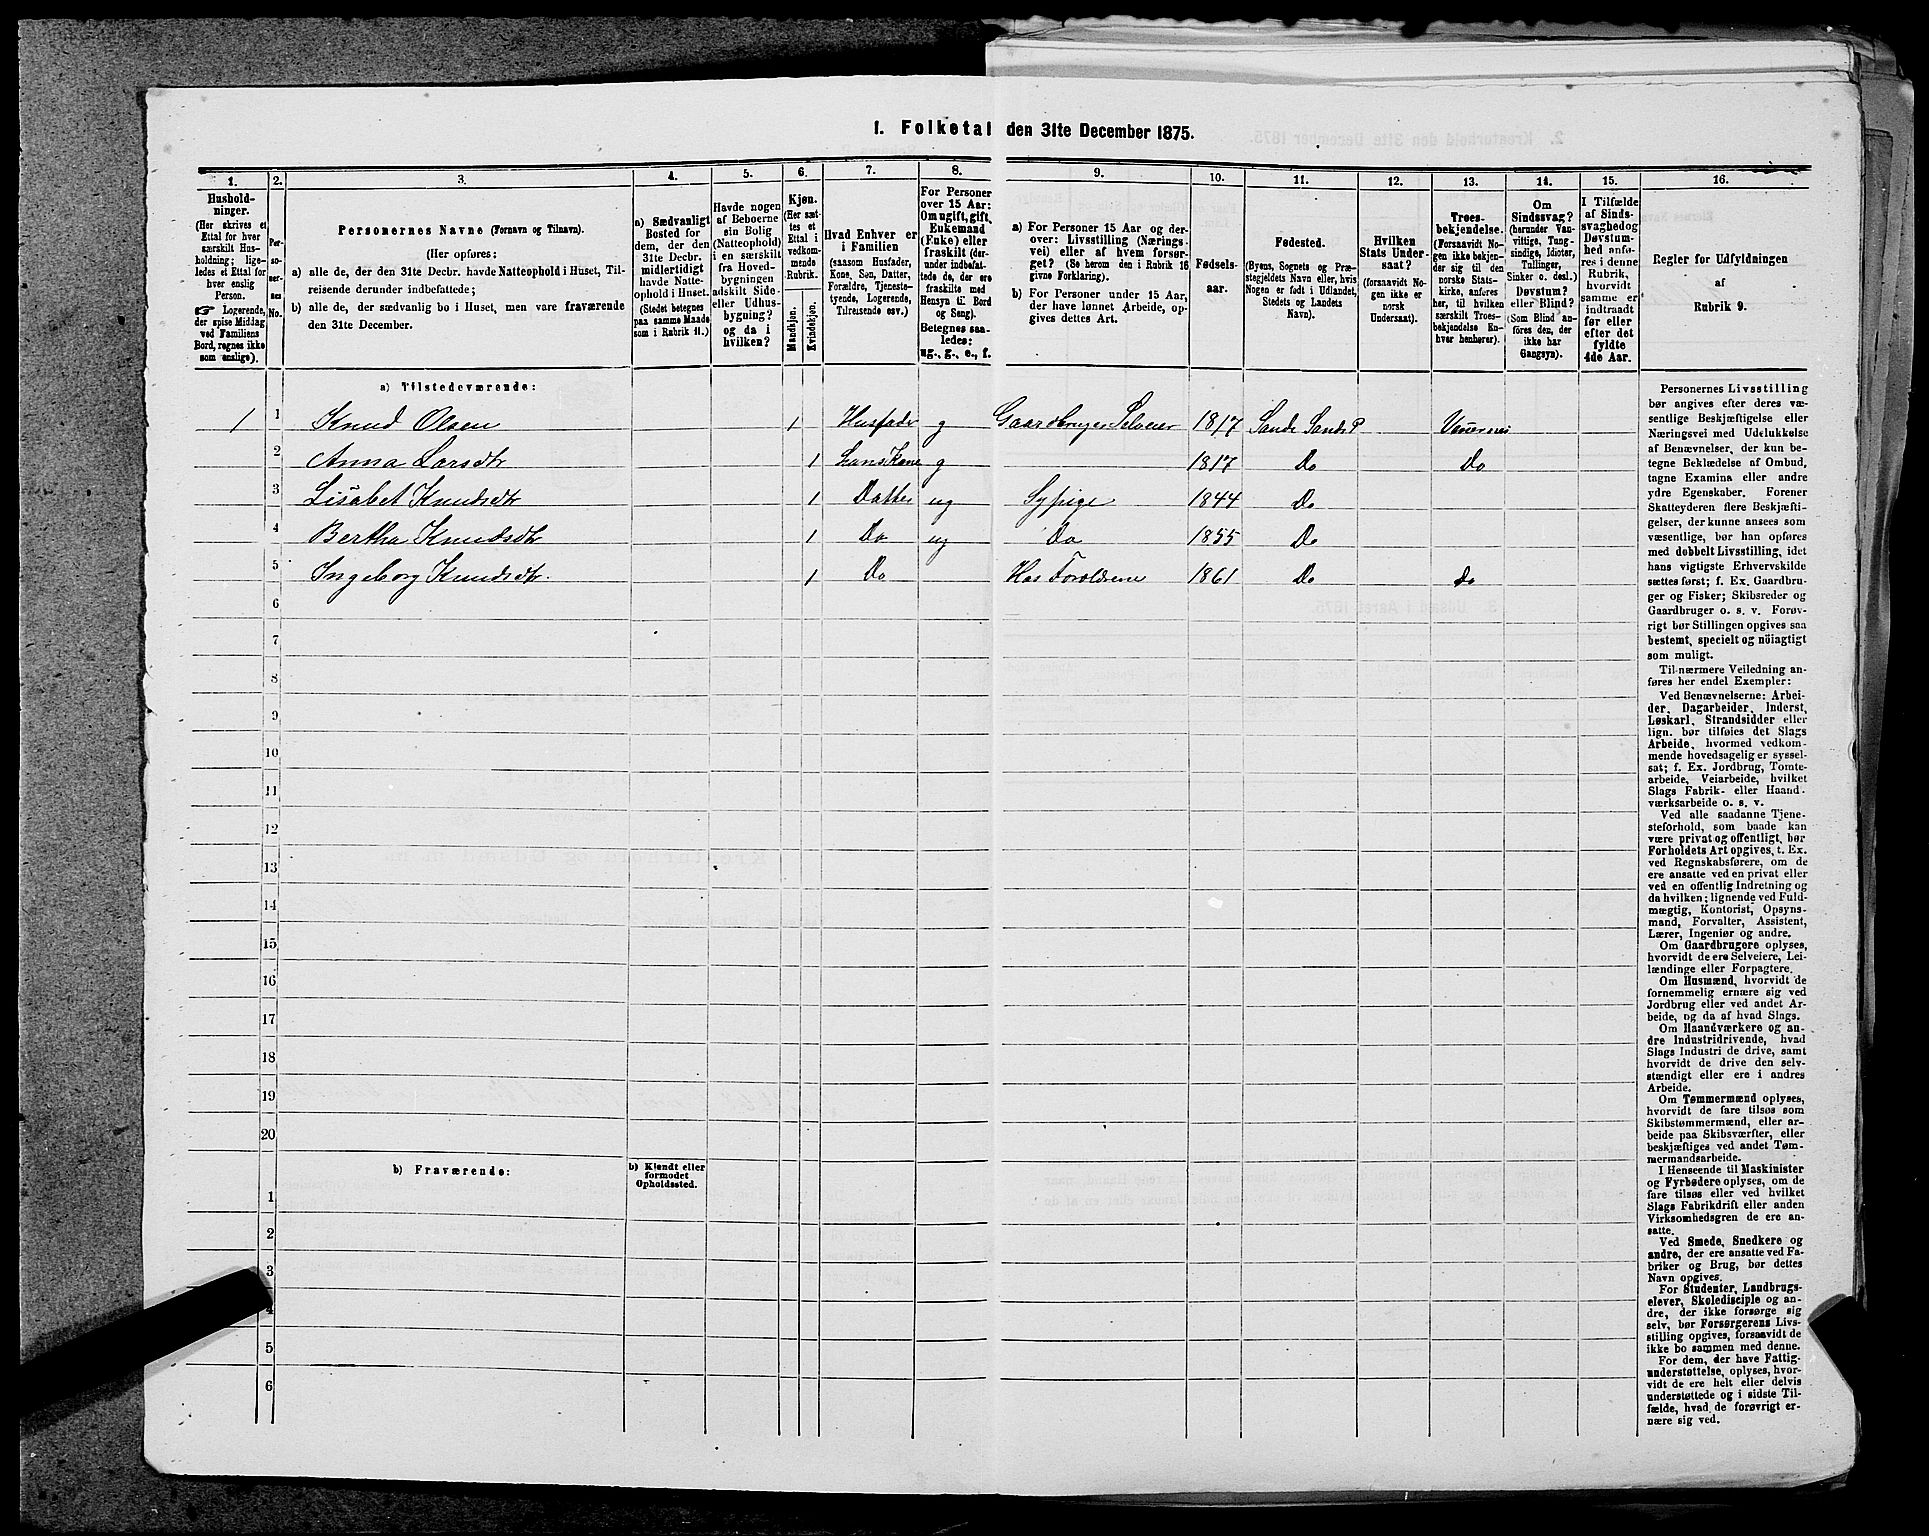 1. Folketal den 31te December 1875.
1. 2. 3. 4. 5. 6. 7. 8. 9. 10. 11. 12. 13. 14. 15. 16.
Hushold-
ninger.
(Her skrives et
Ettal for hver
særskilt Hus-
holdning; lige-
ledes et Ettal for
hver enslig
Person.
☞ Logerende,
der spise Middag
ved Familiens
Bord, regnes ikke
som enslige).
Per-
soner-
nes
No.
Personernes Navne (Fornavn og Tilnavn).
(Her opføres:
a) alle de, der den 31te Decbr. havde Natteophold i Huset, Til-
reisende derunder indbefattede;
b) alle de, der sædvanlig bo i Huset, men vare fraværende
den 31te December.
a) Sædvanligt
Bosted for
dem, der den
31te Decbr.
midlertidigt
havde Natte-
ophold i Huset.
(Stedet betegnes
paa samme Maade
som i Rubrik 11.)
Havde nogen
af Beboerne
ein Bolig
(Natteophold)
i en særskilt
fra Hoved-
bygningen
adskilt Side-
eller Udhus-
bygning?
og da i
hvilken?
Kjøn.
(Her sæt-
tes et
Ettal i
vedkom-
mende
Rubrik.
Mandkjøn.
Kvindekjøn.
Hvad Enhver er
i Familien
(saasom Husfader,
Kone, Søn, Datter,
Forældre, Tjeneste-
tyende, Logerende,
Tilreisende osv.)
For Personer
over 15 Aar:
Om ugift, gift,
Enkemand
(Enke) eller
fraskilt (der-
under indbefat-
tede de, der ere
fraskilte med
Hensyn til Bord
og Seng).
Betegnes saa-
ledes:
ug., g., e., f.
a) For Personer 15 Aar og der-
over: Livsstilling (Nærings-
vei) eller af hvem forsør-
get? (Se herom den i Rubrik 16
givne Forklaring).
b) For Personer under 15 Aar,
der have lønnet Arbeide, op-
gives dettes Art.
Fødsels-
aar.
Fødested.
(Byens, Sognets og Præ-
stegjeldets Navn eller, hvis
Nogen er født i Udlandet,
Stedets og Landets
Navn).
Hvilken
Stats Under-
saat?
(forsaavidt No-
gen ikke er
norsk
Undersaat).
Troes-
bekjendelse.
(Forsaavidt No-
gen ikke bekjen-
der sig til den
norske Stats-
kirke, anføres
her, til hvilken
særskilt Troes-
bekjendelse En-
hver henhører).
Om
Sindssvag?
(herunder Van-
vittige, Tung-
sindige, Idioter,
Tullinger,
Sinker o. desl.)
Døvstum?
eller Blind?
(Som Blind an-
føres den, der
ikke har
Gangsyn).
I Tilfælde
af Sinds-
svaghed og
Døvstum-
hed anfø-
res i denne
Rubrik,
hvorvidt
samme er
indtraadt
før eller
efter det
fyldte
4de Aar.
Regler for Udfyldningen
af
Rubrik 9.
a) Tilstedeværende:
1 1 Knud Olsen 1 Husfader g Gaardbruger Selveier 1817 Sande Sands P
2 Anna Larsdtr 1 Hans Kone g 1817 Do Do
3 Lisabet Knudsdtr 1 Datter ug Sypige 1844 Do
4 Bertha Knudsdtr 1 Do ug Do 1855 Do
5 Ingeborg Knudsdtr. 1 Do Hos Forældrene 1861 Do Do
6
7
8
9
10
11
12
13
14
15
16
17
18
19
20
b) Fraværende:
b) Kjendt eller
formodet
Opholdssted.
1
2
3
4
5
6
Personernes Livsstilling
bør angives efter deres væ-
sentlige Beskjæftigelse eller
Næringsvei med Udelukkelse
af Benævnelser, der kun be-
tegne Beklædelse af Ombud,
tagne Examina eller andre
ydre Egenskaber. Forener
Skatteyderen flere Beskjæfti-
gelser, der kunne ansees som
væsentlige, bør han opføres
med dobbelt Livsstilling, idet
hans vigtigste Erhvervskilde
sættes først; f. Ex. Gaardbru-
ger og Fisker; Skibsreder og
Gaardbruger o. s. v. Forøv-
rigt bør Stillingen opgives saa
bestemt, specielt og nöiagtigt
som muligt.
Til nærmere Veiledning an-
føres her endel Exempler:
Ved Benævnelserne: Arbei-
der, Dagarbeider, Inderst,
Løskarl, Strandsidder eller
lign. bør tilføies det Slags
Arbeide, hvormed vedkom-
mende hovedsagelig er syssel-
sat; f. Ex. Jordbrug, Tomte-
arbeide, Veiarbeide, hvilket
Slags Fabrik- eller Haand-
værksarbeide o. s. v.
Ved alle saadanne Tjene-
steforhold, som baade kan
være privat og offentligt, bør
Forholdets Art opgives, t. Ex.
ved Regnskabsførere, om de
ere ansatte ved en privat eller
ved en offentlig Indretning og
da hvilken; lignende ved Fuld-
mægtig, Kontorist, Opsyns-
mand, Forvalter, Assistent,
Lærer, Ingeniør og andre.
Om Gaardbrugere oplyses,
hvorvidt de ere Selveiere, Lei-
lændinge eller Forpagtere.
Om Husmænd, hvorvidt de
fornemmelig ernære sig ved
Jordbrug eller ved andet Ar-
beide, og da af hvad Slags.
Om Haandværkere og an-
dre Industridrivende, hvad
Slags Industri de drive, samt
hvorvidt de drive den selv-
stændigt eller ere i andres
Arbeide.
Om Tømmermænd oplyses,
hvorvidt de fare tilsøs som
Skibstømmermænd, eller ar-
beide paa Skibsværfter, eller
beskjæftiges ved andet Tøm-
mermandsarbeide.
I Henseende til Maskinister
og Fyrbødere oplyses, om de
fare tilsøs eller ved hvilket
Slags Fabrikdrift eller anden
Virksomhedsgren de ere an-
satte.
Ved Smede, Snedkere og
andre, der ere ansatte ved Fa-
briker og Brug, bør dettes
Navn opgives.
For Studenter, Landbrugs-
elever, Skoledisciple og an-
dre, der ikke forsørge sig
selv, bør Forsørgerens Livs-
stilling opgives, forsaavidt de
ikke bo sammen med denne.
For dem, der have Fattig-
understøttelse, oplyses, hvor-
vidt de ere helt eller delvis
understøttede og i sidste Til-
fælde, hvad de forøvrigt er-
nære sig ved.